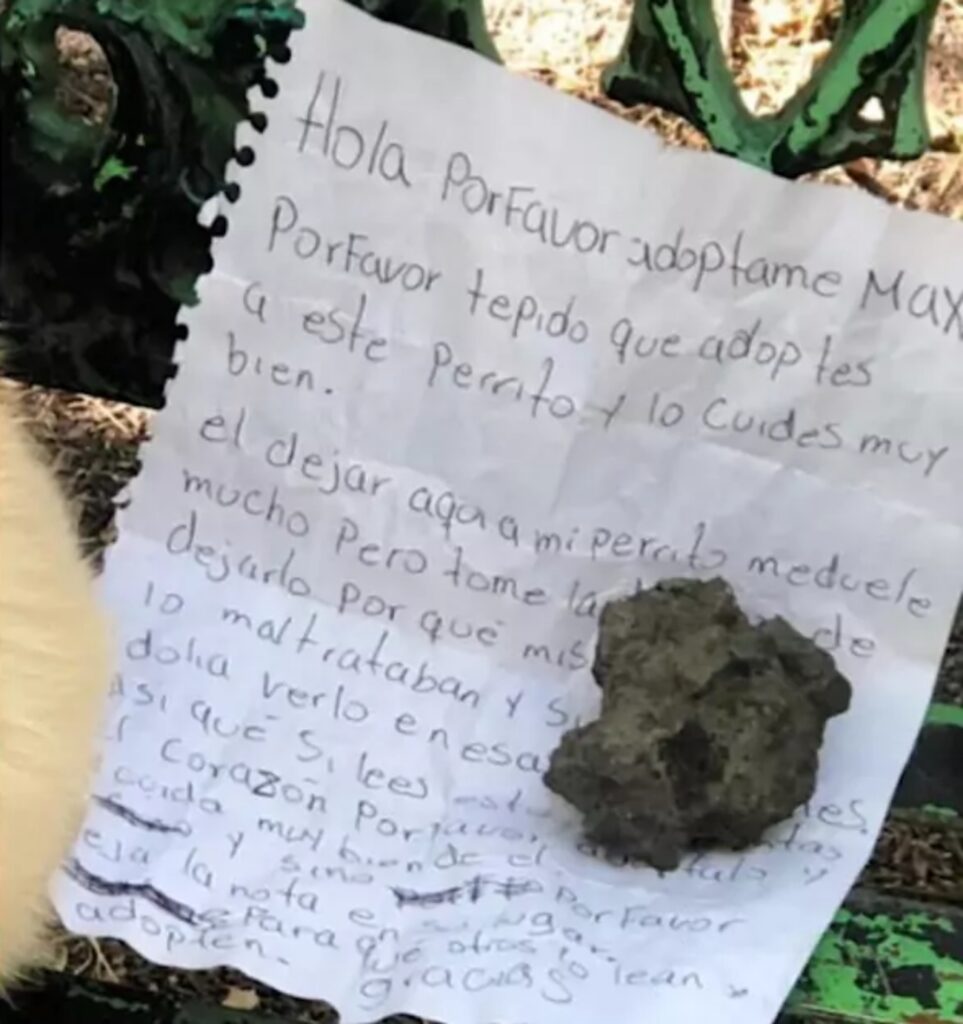 Hola PorFavor adoptame Max
PorFavor tepido que adoptes
a este Perrito y lo Cuides muy
bien.
el dejar aqui a mi perrito meduele
mucho Pero tome la de
dejarlo Por qué mis
lo maltrataban y
dolia verlo en esa
Asi qué si lees
corazón Porfavor
cuida muy bien de el y
y sino PorFavor
la nota en su lugar.
Para qué otros lo lean y
adopten. gracias